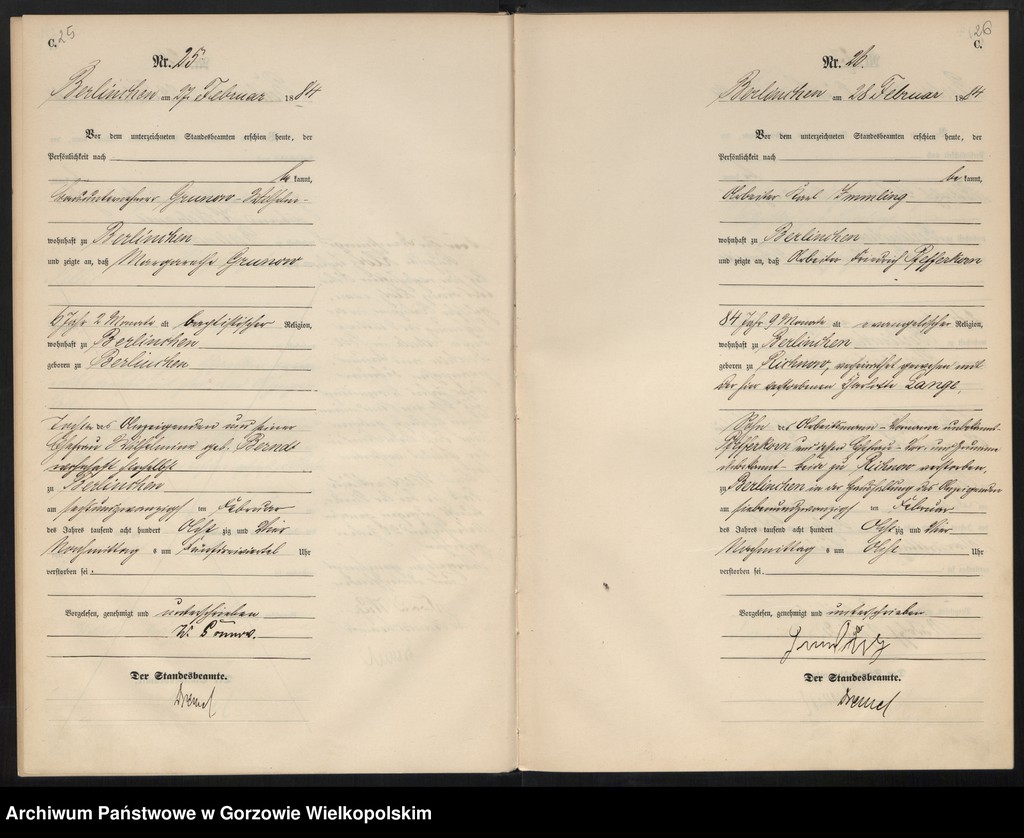 C. 25
Nr. 25.
Berlinchen am 27 Februar 1884
Vor dem unterzeichneten Standesbeamten erschien heute, der
Persönlichkeit nach
be kannt,
Grunow - Wilhelm -
wohnhaft zu Berlinchen
und zeigte an, daß Margarethe Grunow
6 Jahr 2 Monate alt baptistischer Religion,
wohnhaft zu Berlinchen
geboren zu Berlinchen
Tochter des Anzeigenden und seiner
Ehefrau Wilhelmine geb. Berndt
wohnhaft
zu Berlinchen
am sechsundzwanzigsten Februar
des Jahres tausend acht hundert Acht zig und Vier
Nachmittag s um Uhr
verstorben sei.
Vorgelesen, genehmigt und unterschrieben
W. Grunow.
Der Standesbeamte.
26
C.
Nr. 26.
Berlinchen am 28 Februar 1884
Vor dem unterzeichneten Standesbeamten erschien heute, der
Persönlichkeit nach
be kannt,
Arbeiter Karl Immling
wohnhaft zu Berlinchen
und zeigte an, daß Arbeiter Friedrich Pfefferkorn
84 Jahr 9 Monate alt evangelischer Religion,
wohnhaft zu Berlinchen
geboren zu Richnow, verheirathet gewesen mit
der hier verstorbenen Charlotte Lange,
Sohn des Arbeitsmann - Vorname unbekannt -
Pfefferkorn und dessen Ehefrau - Vor- und Zuname
unbekannt - beide zu Richnow verstorben,
zu Berlinchen in der Behausung des Anzeigenden
am siebenundzwanzigsten Februar
des Jahres tausend acht hundert Acht zig und Vier
Nachmittag s um Acht Uhr
verstorben sei.
Vorgelesen, genehmigt und unterschrieben
Der Standesbeamte.
Archiwum Państwowe w Gorzowie Wielkopolskim